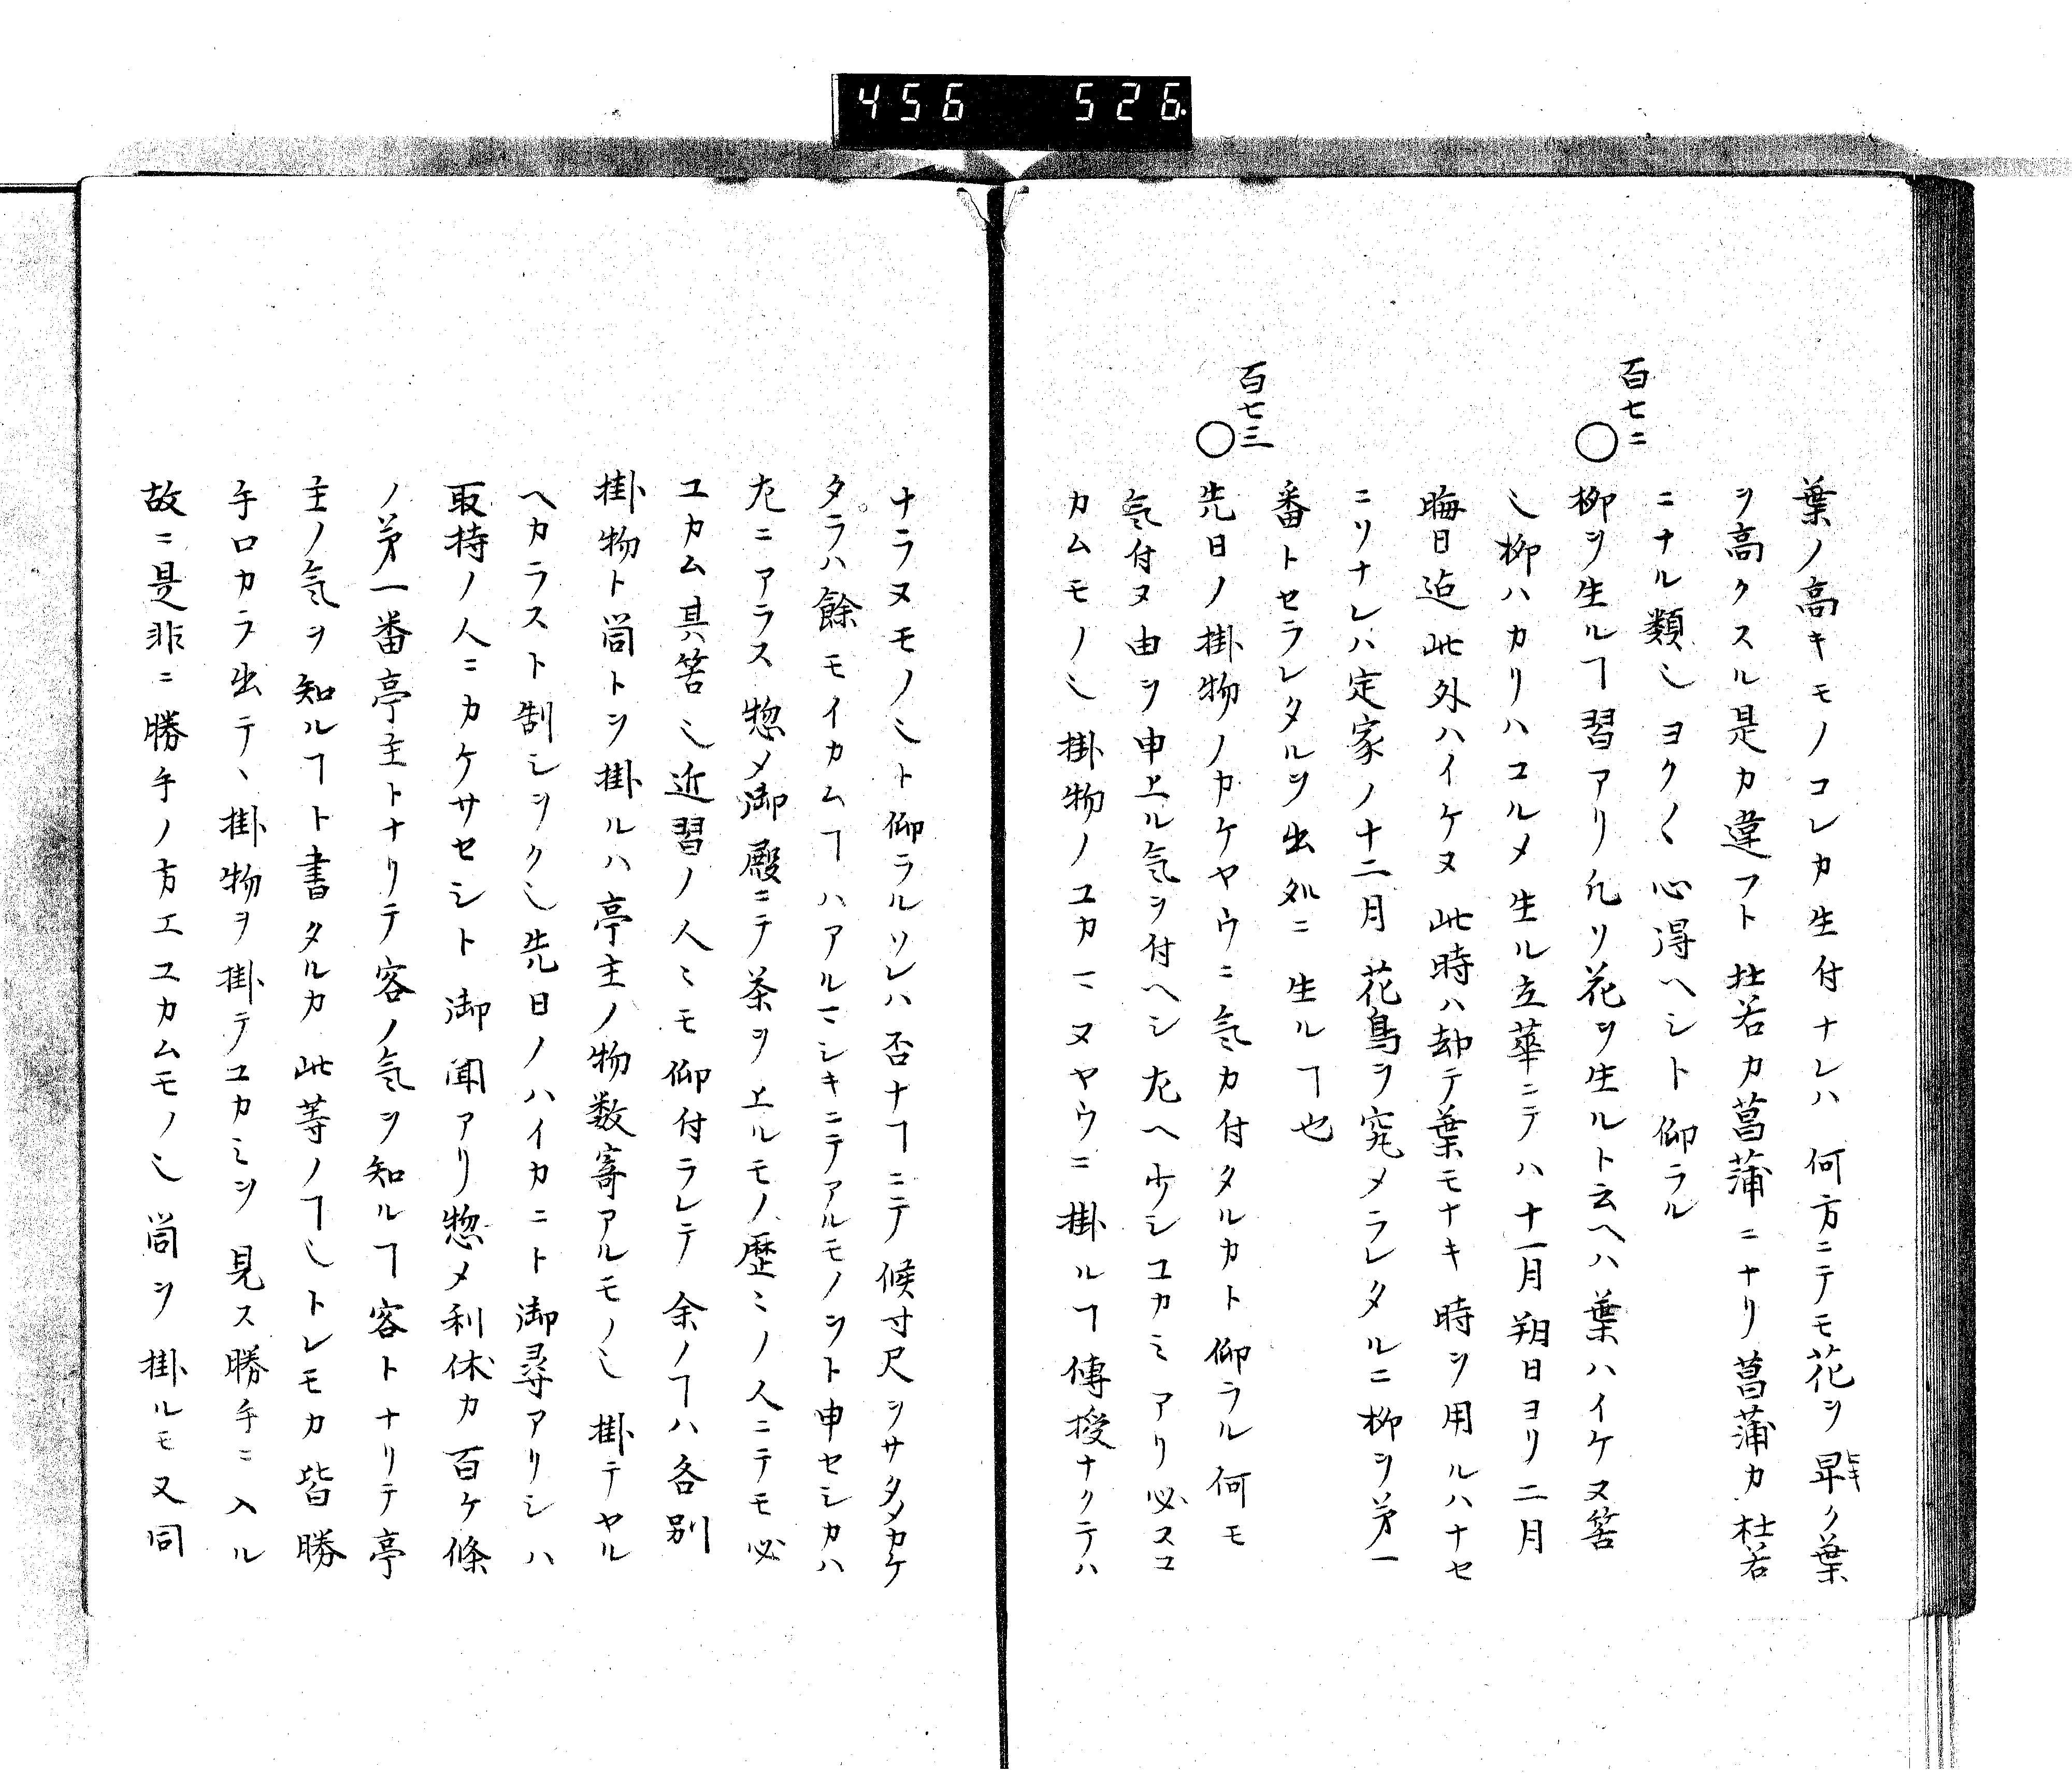 456 526
葉ノ高キモノコレカ生付ナレハ何方ニテモ花ヲ早ク葉
ヲ高クスル是カ違フト杜若カ菖蒲ニナリ菖蒲カ杜若
ニナル類也ヨク〱心得ヘシト仰ラル
百七二
○柳ヲ生ルヿ習アリ凡ソ花ヲ生ルト云ヘハ葉ハイケヌ筈
也柳ハカリハコルメ生ル立華ニテハ十一月朔日ヨリ二月
晦日迄此外ハイケヌ此時ハ却テ葉モナキ時ヲ用ルハナセ
ニソナレハ定家ノ十二月花鳥ヲ究メラレタルニ柳ヲ第一
番トセラレタルヲ出処ニ生ルヿ也
百七三
○先日ノ掛物ノカケヤウニ気カ付タルカト仰ラル何モ
気付ヌ由ヲ申上ル気ヲ付ヘシ左ヘ少シユカミアリ必スユ
カムモノ也掛物ノユカマヌヤウニ掛ルヿ傳授ナクテハ
ナラヌモノ也ト仰ラルソレハ否ナヿニテ候寸尺ヲサタメカケ
タラハ餘モイカムヿハアルマシキニテアルモノヲト申セシカハ
左ニアラス惣メ御殿ニテ茶ヲ上ルモノ歴々ノ人ニテモ必
ユカム其筈也近習ノ人々モ仰付ラレテ余ノヿハ各別
掛物ト筒トヲ掛ルハ亭主ノ物数寄アルモノ也掛テヤル
ヘカラスト制シヲク也先日ノハイカニト御尋アリシハ
取持ノ人ニカケサセシト御聞アリ惣メ利休カ百ケ條
ノ第一番亭主トナリテ客ノ気ヲ知ルヿ客トナリテ亭
主ノ気ヲ知ルヿト書タルカ此等ノヿ也トレモカ皆勝
手口カラ出テ、掛物ヲ掛テユカミヲ見ス勝手ニ入ル
故ニ是非ニ勝手ノ方エユカムモノ也筒ヲ掛ルモ又同